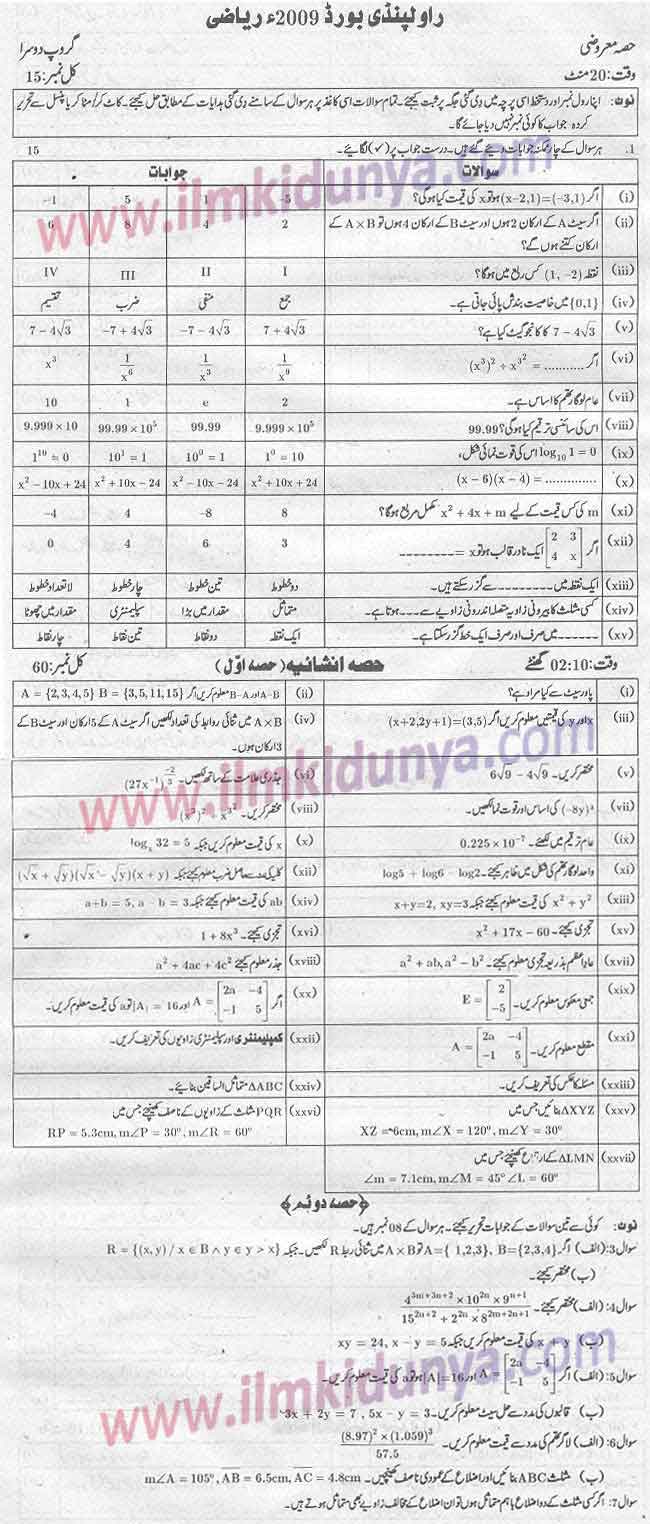 راولپنڈی بورڈ 2009ء ریاضی
حصہ معروضی گروپ دوسرا
وقت: 20 منٹ کل نمبر: 15
نوٹ: اپنا رول نمبر اور دستخط اسی پرچہ میں دی گئی جگہ پر ثبت کیجئے۔ تمام سوالات اسی کاغذ پر ہر سوال کے سامنے دی گئی ہدایات کے مطابق حل کیجئے۔ کاٹ کر/مٹا کر یا پنسل سے تحریر
کردہ جواب کا کوئی نمبر نہیں دیا جائے گا۔
1. ہر سوال کے چار ممکنہ جوابات دیئے گئے ہیں۔ درست جواب پر (✓) لگائیے۔ 15
سوالات جوابات
(i) اگر (x-2,1)=(-3,1) ہو تو x کی قیمت کیا ہوگی؟ -5 1 5 -1
(ii) اگر سیٹ A کے ارکان 2 ہوں اور سیٹ B کے ارکان 4 ہوں تو A×B کے 2 4 8 6
ارکان کتنے ہوں گے؟
(iii) نقطہ (1, -2) کس ربع میں ہوگا؟ I II III IV
(iv) {0,1} میں خاصیت بندش پائی جاتی ہے۔ جمع منفی ضرب تقسیم
(v) 7 - 4√3 کا کانجوگیٹ کیا ہے؟ 7 + 4√3 -7 - 4√3 -7 + 4√3 7 - 4√3
(vi) اگر .......... = (x³)² ÷ x^3² 1/x⁹ 1/x³ 1/x⁶ x³
(vii) عام لوگارتھم کا اساس ہے۔ 2 e 1 10
(viii) اس کی سائنسی ترقیم کیا ہوگی؟ 99.99 9.999 × 10⁵ 99.99 99.99 × 10⁵ 9.999 × 10
(ix) log₁₀ 1 = 0 اس کی قوت نمائی شکل، 1⁰ = 10 10⁰ = 1 10¹ = 1 1¹⁰ = 0
(x) (x-6)(x-4) = ............. x² + 10x + 24 x² - 10x - 24 x² + 10x - 24 x² - 10x + 24
(xi) m کی کس قیمت کے لیے x² + 4x + m مکمل مربع ہوگا؟ 8 -8 4 -4
(xii) اگر [2 3; 4 x] ایک نادر قالب ہو تو x = -------- 3 6 4 0
(xiii) ایک نقطہ میں -------- سے گزر سکتے ہیں۔ دو خطوط تین خطوط چار خطوط لاتعداد خطوط
(xiv) کسی مثلث کا بیرونی زاویہ متصلہ اندرونی زاویے سے --- ہوتا ہے۔ متماثل مقدار میں بڑا سپلیمنٹری مقدار میں چھوٹا
(xv) ------ میں صرف اور صرف ایک خط گزر سکتا ہے۔ ایک نقطہ دو نقاط تین نقاط چار نقاط
وقت: 02:10 گھنٹے حصہ انشائیہ (حصہ اوّل) کل نمبر: 60
(i) پاور سیٹ سے کیا مراد ہے؟ (ii) A-B اور B-A معلوم کریں اگر A = {2,3,4,5} B = {3,5,11,15}
(iii) x اور y کی قیمتیں معلوم کریں اگر (x+2,2y+1)=(3,5) (iv) A×B میں ثنائی روابط کی تعداد لکھیں اگر سیٹ A کے 5 ارکان اور سیٹ B کے
3 ارکان ہوں۔
(v) مختصر کریں۔ 6√9 - 4√9 (vi) جذری علامت کے ساتھ لکھیں۔ (27x⁻¹)^(-2/3)
(vii) (-8y)⁴ کی اساس اور قوت نما لکھیں۔ (viii) مختصر کریں۔ (x³)² ÷ x^3²
(ix) عام ترقیم میں لکھئے۔ 0.225 × 10⁻⁷ (x) x کی قیمت معلوم کریں جبکہ logₓ 32 = 5
(xi) واحد لوگارتھم کی شکل میں ظاہر کیجئے۔ log5 + log6 - log2 (xii) کلیہ کی مدد سے حاصل ضرب معلوم کیجئے جبکہ (√x + √y)(√x - √y)(x + y)
(xiii) x² + y² کی قیمت معلوم کیجئے جبکہ x+y=2, xy=3 (xiv) ab کی قیمت معلوم کیجئے جبکہ a+b = 5, a - b = 3
(xv) تجزی کیجئے۔ x² + 17x - 60 (xvi) تجزی کیجئے۔ 1 + 8x³
(xvii) عاد اعظم بذریعہ تجزی معلوم کیجئے۔ a² + ab, a² - b² (xviii) جذر معلوم کیجئے a² + 4ac + 4c²
(xix) جمعی معکوس معلوم کریں۔ E = [2; -5] (xx) اگر A = [2a -4; -1 5] اور |A| = 16 تو a کی قیمت معلوم کریں۔
(xxi) مقطع معلوم کریں۔ A = [2a -4; -1 5] (xxii) کمپلیمنٹری اور سپلیمنٹری زاویوں کی تعریف کریں۔
(xxiii) مسئلہ کا عکس کی تعریف کریں۔ (xxiv) ΔABC متماثل الساقین بنائیے۔
(xxv) ΔXYZ بنائیں جس میں (xxvi) PQR مثلث کے زاویوں کے ناصف کھینچئے جس میں
XZ = 6cm, m∠X = 120°, m∠Y = 30° RP = 5.3cm, m∠P = 30°, m∠R = 60°
(xxvii) ΔLMN کے ارتفاع کھینچئے جس میں
∠m = 7.1cm, m∠M = 45° ∠L = 60°
﴿حصہ دوئم﴾
نوٹ: کوئی سے تین سوالات کے جوابات تحریر کیجئے۔ ہر سوال کے 08 نمبر ہیں۔
سوال 3: (الف) اگر A={ 1,2,3}, B={2,3,4} تو A×B میں ثنائی ربط R لکھیں۔ جبکہ R = {(x, y) / x ∈ B ∧ y ∈ y > x}
(ب) مختصر کیجئے۔
سوال 4: (الف) مختصر کیجئے۔ (4^(3m+3n+2) × 10^(2n) × 9^(n+1)) / (15^(2n+2) + 2^(2n) × 8^(2m+2n+1))
(ب) x + y کی قیمت معلوم کریں جبکہ xy = 24, x - y = 5
سوال 5: (الف) اگر A = [2a -4; -1 5] اور |A|=16 ہو تو a کی قیمت معلوم کریں۔
(ب) قالبوں کی مدد سے حل سیٹ معلوم کریں۔ 3x + 2y = 7 , 5x - y = 3
سوال 6: (الف) لاگرتھم کی مدد سے قیمت معلوم کریں۔ ((8.97)² × (1.059)³) / 57.5
(ب) مثلث ABC بنائیں اور اضلاع کے عمودی ناصف کھینچیں۔ m∠A = 105°, AB = 6.5cm, AC = 4.8cm
سوال 7: اگر کسی مثلث کے دو اضلاع باہم متماثل ہوں تو ان اضلاع کے مخالف زاویے بھی متماثل ہوتے ہیں۔
www.ilmkidunya.com
www.ilmkidunya.com
www.ilmkidunya.com